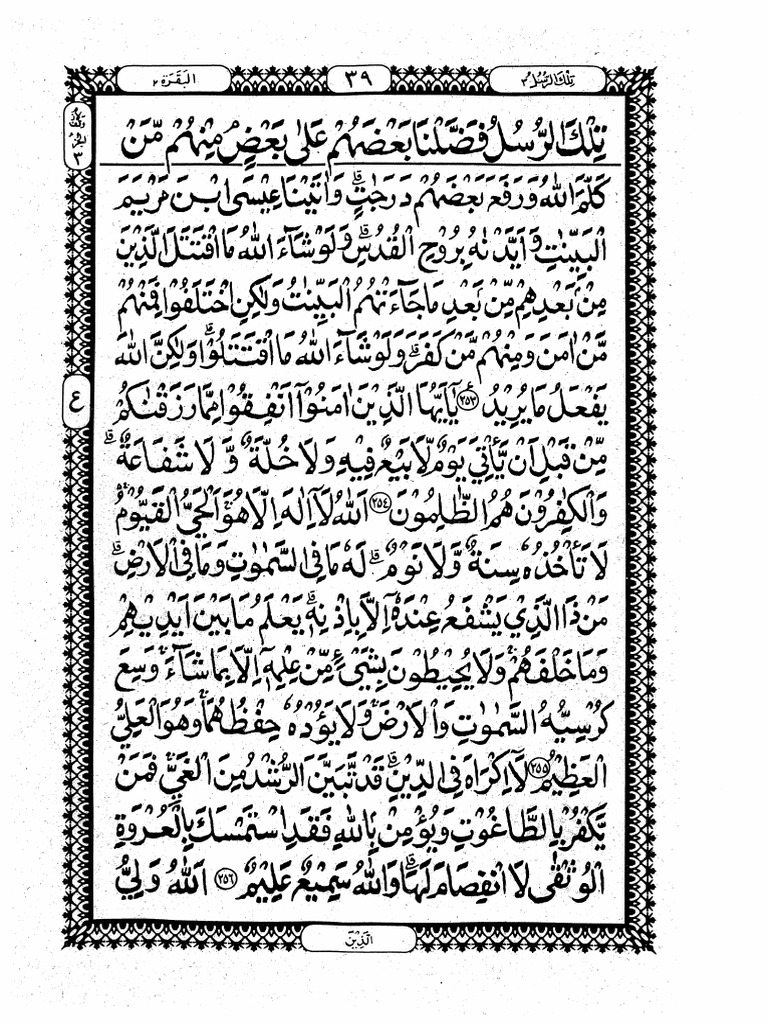 تِلْكَ الرُّسُلُ ٣
٣٩
اَلْبَقَرَة ٢
تِلْكَ الرُّسُلُ فَضَّلْنَا بَعْضَهُمْ عَلٰى بَعْضٍ مِنْهُمْ مَّنْ
كَلَّمَ اللّٰهُ وَرَفَعَ بَعْضَهُمْ دَرَجٰتٍ ۗ وَاٰتَيْنَا عِيْسَى ابْنَ مَرْيَمَ
الْبَيِّنٰتِ وَاَيَّدْنٰهُ بِرُوْحِ الْقُدُسِ ۗ وَلَوْ شَآءَ اللّٰهُ مَا اقْتَتَلَ الَّذِيْنَ
مِنْۢ بَعْدِهِمْ مِّنْۢ بَعْدِ مَا جَآءَتْهُمُ الْبَيِّنٰتُ وَلٰكِنِ اخْتَلَفُوْا فَمِنْهُمْ
مَّنْ اٰمَنَ وَمِنْهُمْ مَّنْ كَفَرَ ۗ وَلَوْ شَآءَ اللّٰهُ مَا اقْتَتَلُوْا ۗ وَلٰكِنَّ اللّٰهَ
يَفْعَلُ مَا يُرِيْدُ ﴿٢٥٣﴾ يٰٓاَيُّهَا الَّذِيْنَ اٰمَنُوْٓا اَنْفِقُوْا مِمَّا رَزَقْنٰكُمْ
مِّنْ قَبْلِ اَنْ يَّأْتِيَ يَوْمٌ لَّا بَيْعٌ فِيْهِ وَلَا خُلَّةٌ وَّ لَا شَفَاعَةٌ ۗ
وَالْكٰفِرُوْنَ هُمُ الظّٰلِمُوْنَ ﴿٢٥٤﴾ اَللّٰهُ لَآ اِلٰهَ اِلَّا هُوَ ۚ اَلْحَيُّ الْقَيُّوْمُ ۚ
لَا تَأْخُذُهٗ سِنَةٌ وَّلَا نَوْمٌ ۗ لَهٗ مَا فِي السَّمٰوٰتِ وَمَا فِي الْاَرْضِ ۗ
مَنْ ذَا الَّذِيْ يَشْفَعُ عِنْدَهٗٓ اِلَّا بِاِذْنِهٖ ۗ يَعْلَمُ مَا بَيْنَ اَيْدِيْهِمْ
وَمَا خَلْفَهُمْ ۚ وَلَا يُحِيْطُوْنَ بِشَيْءٍ مِّنْ عِلْمِهٖٓ اِلَّا بِمَا شَآءَ ۚ وَسِعَ
كُرْسِيُّهُ السَّمٰوٰتِ وَالْاَرْضَ ۚ وَلَا يَؤُدُهٗ حِفْظُهُمَا ۚ وَهُوَ الْعَلِيُّ
الْعَظِيْمُ ﴿٢٥٥﴾ لَآ اِكْرَاهَ فِي الدِّيْنِ ۗ قَدْ تَّبَيَّنَ الرُّشْدُ مِنَ الْغَيِّ ۚ فَمَنْ
يَّكْفُرْ بِالطَّاغُوْتِ وَيُؤْمِنْۢ بِاللّٰهِ فَقَدِ اسْتَمْسَكَ بِالْعُرْوَةِ
الْوُثْقٰى لَا انْفِصَامَ لَهَا ۗ وَاللّٰهُ سَمِيْعٌ عَلِيْمٌ ﴿٢٥٦﴾ اَللّٰهُ وَلِيُّ
٣
ع
الَّذِيْنَ